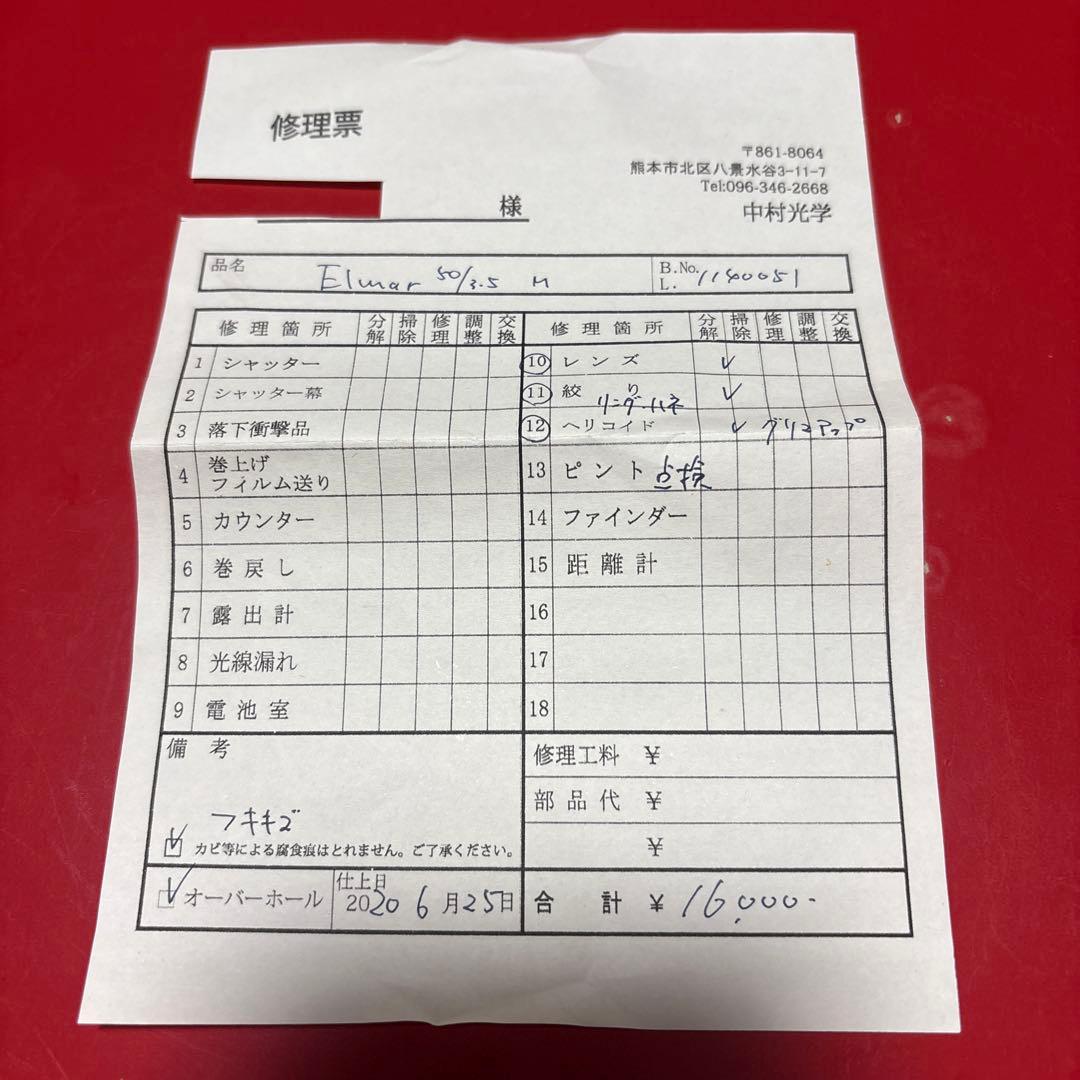 修理票
〒861-8064
熊本市北区八景水谷3-11-7
Tel:096-346-2668
中村光学
様
品名 Elmar 50/3.5 M B.No. L. 1140051
修理箇所 分解 掃除 修理 調整 交換 修理箇所 分解 掃除 修理 調整 交換
1 シャッター 10 レンズ ✓
2 シャッター幕 11 絞り ✓
リング・ハネ
3 落下衝撃品 12 ヘリコイド ✓ グリスアップ
4 巻上げ フィルム送り 13 ピント 点検
5 カウンター 14 ファインダー
6 巻戻し 15 距離計
7 露出計 16
8 光線漏れ 17
9 電池室 18
備考 修理工料 ¥
部品代 ¥
フキキズ
✓ カビ等による腐食痕はとれません。ご了承ください。 ¥
✓ オーバーホール 仕上日 2020 6月25日 合計 ¥ 16,000-